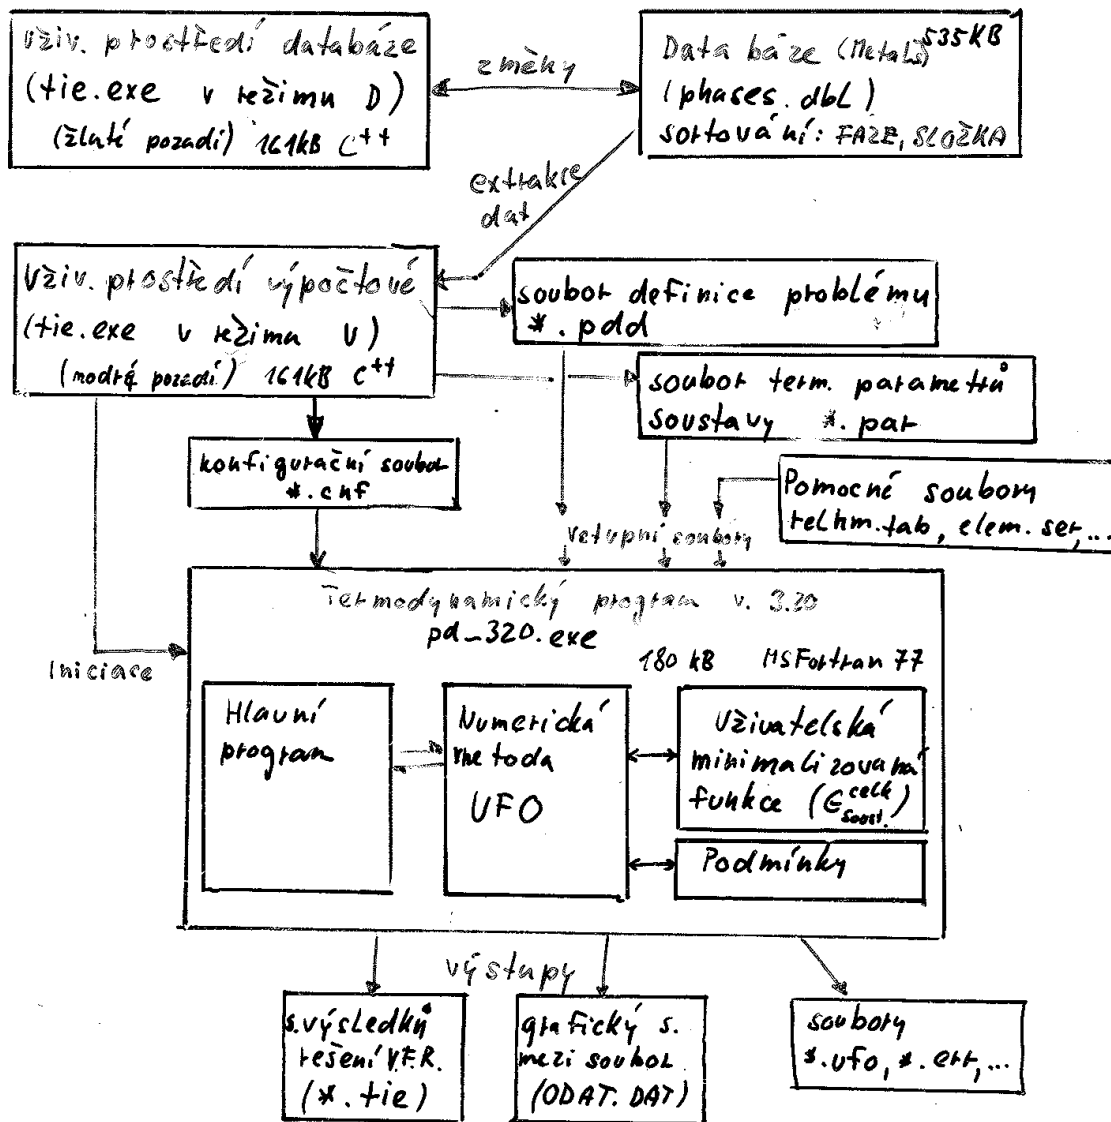 uživ. prostředí databáze
(tie.exe v režimu D)
(žluté pozadí) 161kB C++
změny
Databáze (Metals) 535KB
(phases.dbL)
sortování: FÁZE, SLOŽKA
extrakce
dat
uživ. prostředí výpočtové
(tie.exe v režimu V)
(modré pozadí) 161kB C++
soubor definice problému
*.pdd
soubor term. parametrů
soustavy *.par
konfigurační soubor
*.cnf
Pomocné soubory
relhm.tab, elem.ser,...
vstupní soubory
Termodynamický program v. 3.20
pd_320.exe
180 kB MSFortran 77
Iniciace
Hlavní
program
Numerická
metoda
UFO
Uživatelská
minimalizovaná
funkce (G celk soust.)
Podmínky
výstupy
s.výsledků
řešení V.F.R.
(*.tie)
grafický s.
mezi soubor
(ODAT.DAT)
soubory
*.ufo, *.err,...